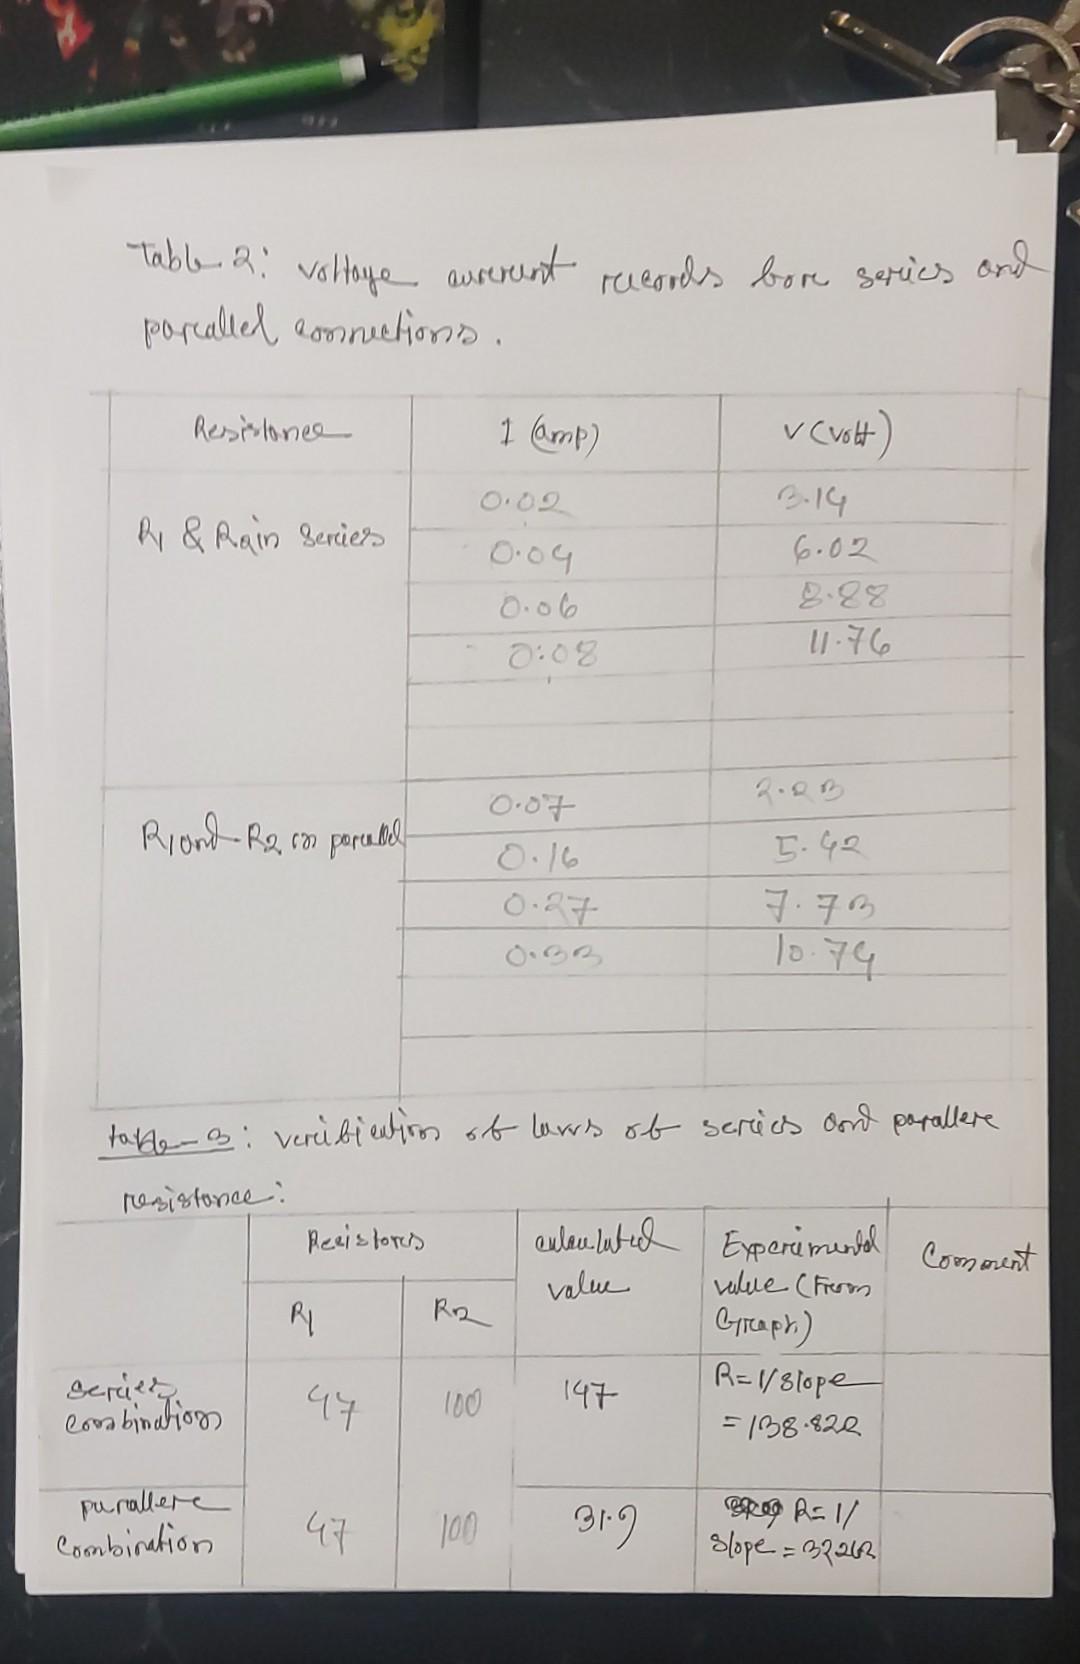 Table 2: voltage current records for series and
parallel connections.
Resistance I (amp) V (volt)
R1 & R2 in Series
0.02 3.14
0.04 6.02
0.06 8.88
0.08 11.76
R1 and R2 in parallel
0.07 2.23
0.16 5.42
0.27 7.73
0.33 10.74
table-3: verification of laws of series and parallere
resistance:
Resistors calculated value Experimental value (From Graph) Comment
R1 R2
Series combination 47 100 147 R=1/slope = 138.82Ω
parallere combination 47 100 31.9 R=1/ slope =